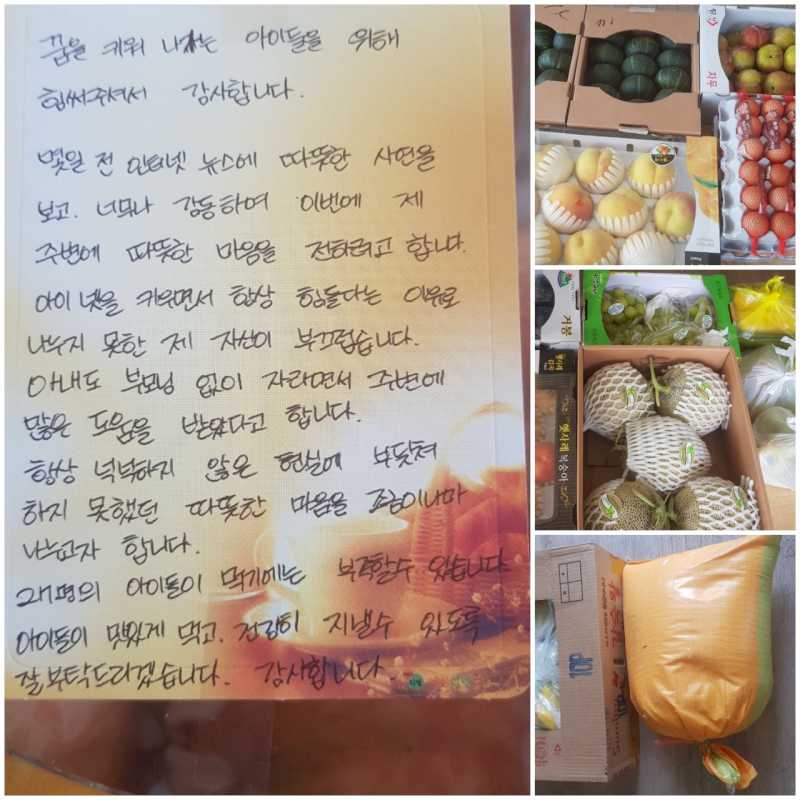 꿈을 키워 나가는 아이들을 위해
힘써주셔서 감사합니다.
몇일 전 인터넷 뉴스에 따뜻한 사연을
보고. 너무나 감동하여 이번에 제
주변에 따뜻한 마음을 전하려고 합니다.
아이 넷을 키우면서 항상 힘들다는 이유로
나누지 못한 제 자신이 부끄럽습니다.
아내도 부모님 없이 자라면서 주변에
많은 도움을 받았다고 합니다.
항상 넉넉하지 않은 현실에 부딪쳐
하지 못했던 따뜻한 마음을 조금이나마
나누고자 합니다.
24명의 아이들이 먹기에는 부족할수 있습니다
아이들이 맛있게 먹고. 건강히 지낼수 있도록
잘 부탁드리겠습니다. 감사합니다.
자두
거봉
햇사레
복숭아